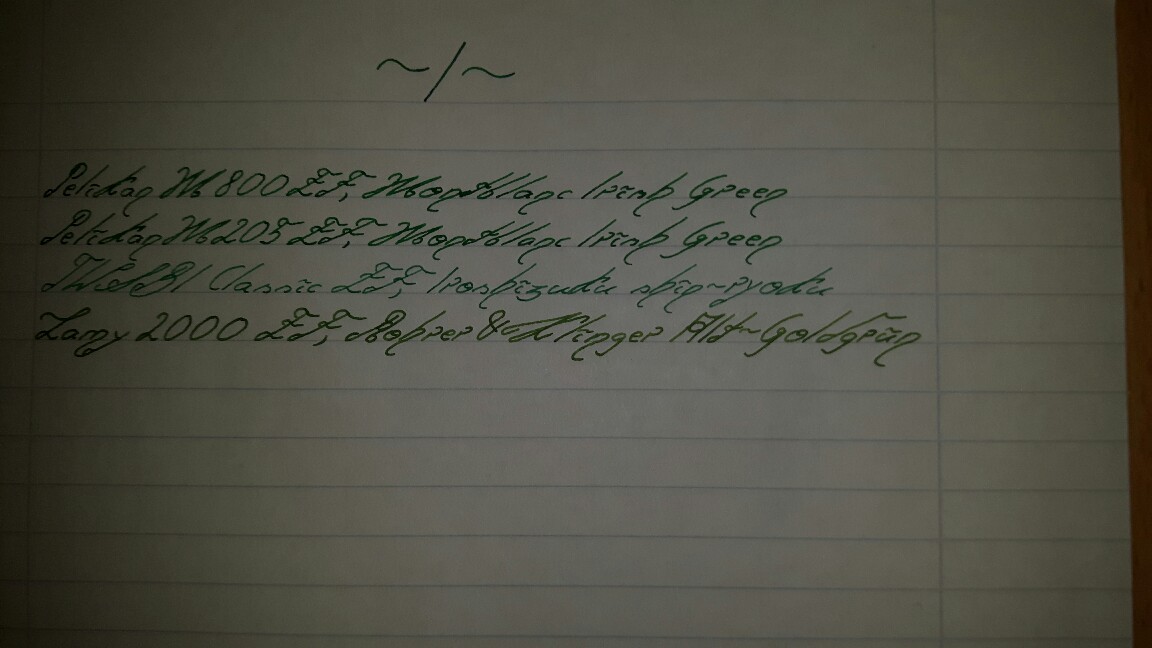 ~/~
Pelikan M800 EF, Montblanc Irish Green
Pelikan M205 EF, Montblanc Irish Green
TWSBI Classic EF, Iroshizuku shin-ryoku
Lamy 2000 EF, Rohrer & Klinger Alt-Goldgrün